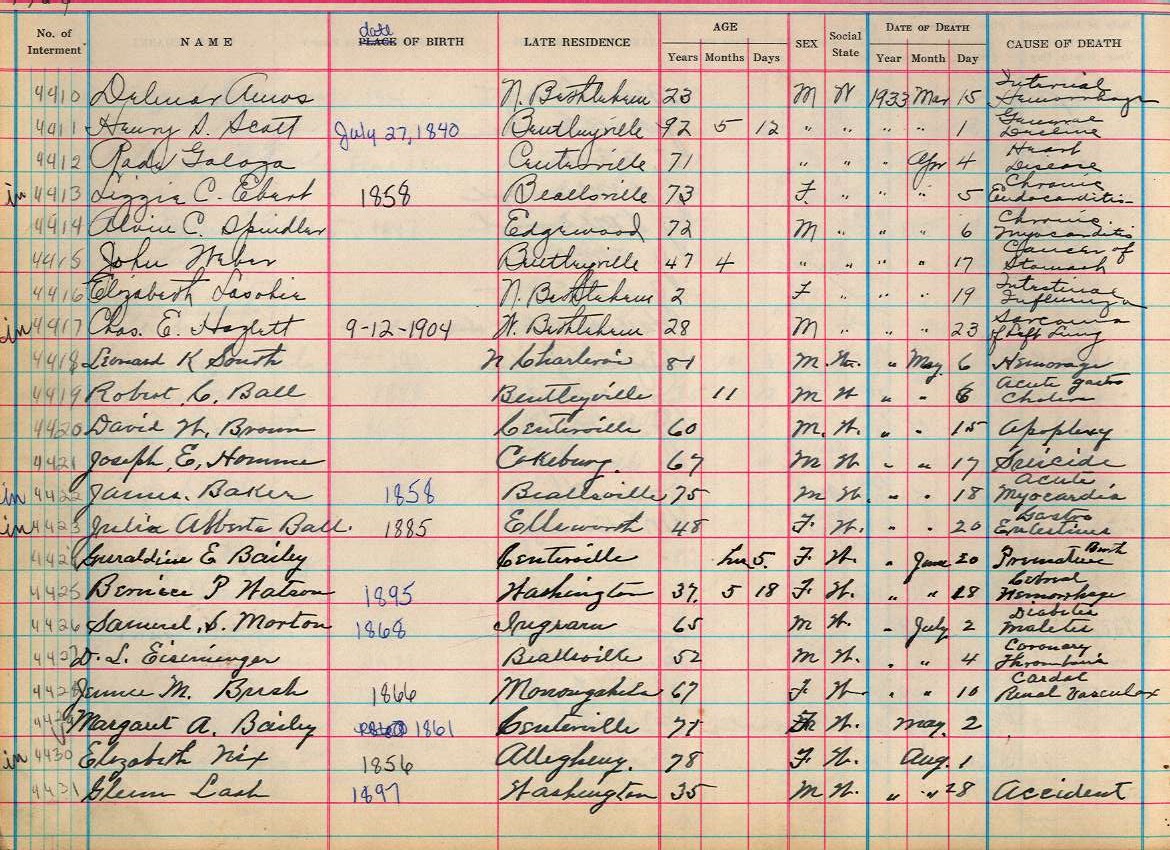 No. of Interment NAME date PLACE OF BIRTH LATE RESIDENCE AGE Years Months Days SEX Social State DATE OF DEATH Year Month Day CAUSE OF DEATH
4410 Delmar Amos N. Bethlehem 23 M W 1933 Mar 15 Internal Hemorrhage
4411 Henry S. Scott July 27, 1840 Bentleyville 92 5 12 " " " " 1 General Decline
4412 Rade Galoza Centerville 71 " " " Apr 4 Heart Disease
in 4413 Lizzie C. Ebert 1858 Beallsville 73 F. " " " 5 Chronic Endocarditis
4414 Alvie C. Spindler Edgewood 72 M " " " 6 Chronic Myocarditis
4415 John Weber Bentleyville 47 4 " " " " 17 Cancer of Stomach
4416 Elizabeth N. Bethlehem 2 F " " " 19 Intestinal Influenza
in 4417 Chas. E. Hazlett 9-12-1904 W. Bethlehem 28 M " " " 23 Sarcoma of Left Lung
4418 Leonard K Smith N Charleroi 81 M W. " May 6 Hemorage
4419 Robert C. Ball Bentleyville 11 M W. " " 6 Acute gastro Cholera
4420 David W. Brown Centerville 60 M. W. " " 15 Apoplexy
4421 Joseph E. Homme Cokeburg. 67 M W. " " 17 Suicide
in 4422 James. Baker 1858 Beallsville 75 M W. " " 18 Acute Myocardia
in 4423 Julia Alberta Ball. 1885 Ellsworth 48 F. W. " " 20 Gastro Enlestines
4424 Geraldine E Bailey Centerville 5. F. W. " June 20 Premature Birth
4425 Berniece P Watson 1895 Washington 37. 5 18 F. W. " " 18 Hemorrhage
4426 Samuel S. Morton 1868 Ingram 65 M W. " July 2 Diabetes Maletes
4427 D. L. Eiseminger Beallsville 52 M W. " " 4 Coronary Thrombosis
4428 Jennie M. Brush 1866 Monongahela 67 F W " " 10 Cardal Renal Vascular
4429 Margaret A. Bailey 1861 Centerville 71 F W. May. 2
in 4430 Elizabeth Nix 1856 Allegheny. 78 F W. Aug. 1
4431 Glenn Lash 1897 Washington 35 M W. " " 28 Accident